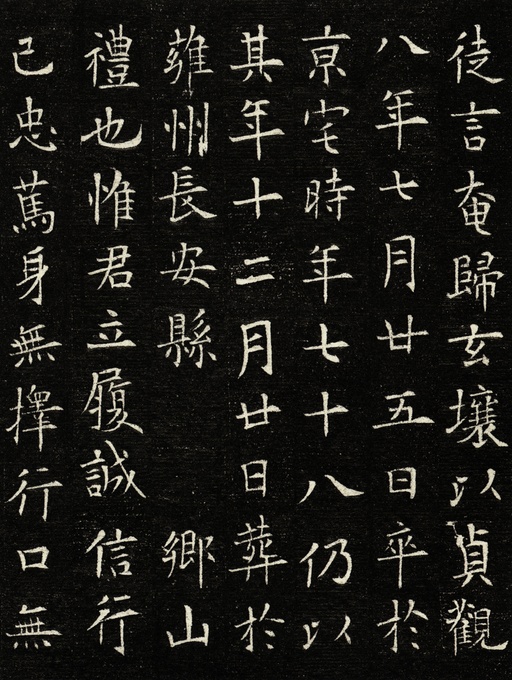 徒言奄歸玄壤以貞觀
八年七月廿五日卒於
京宅時年七十八仍以
其年十二月廿日葬於
雍州長安縣　　鄉山
禮也惟君立履誠信行
己忠蔿身無擇行口無